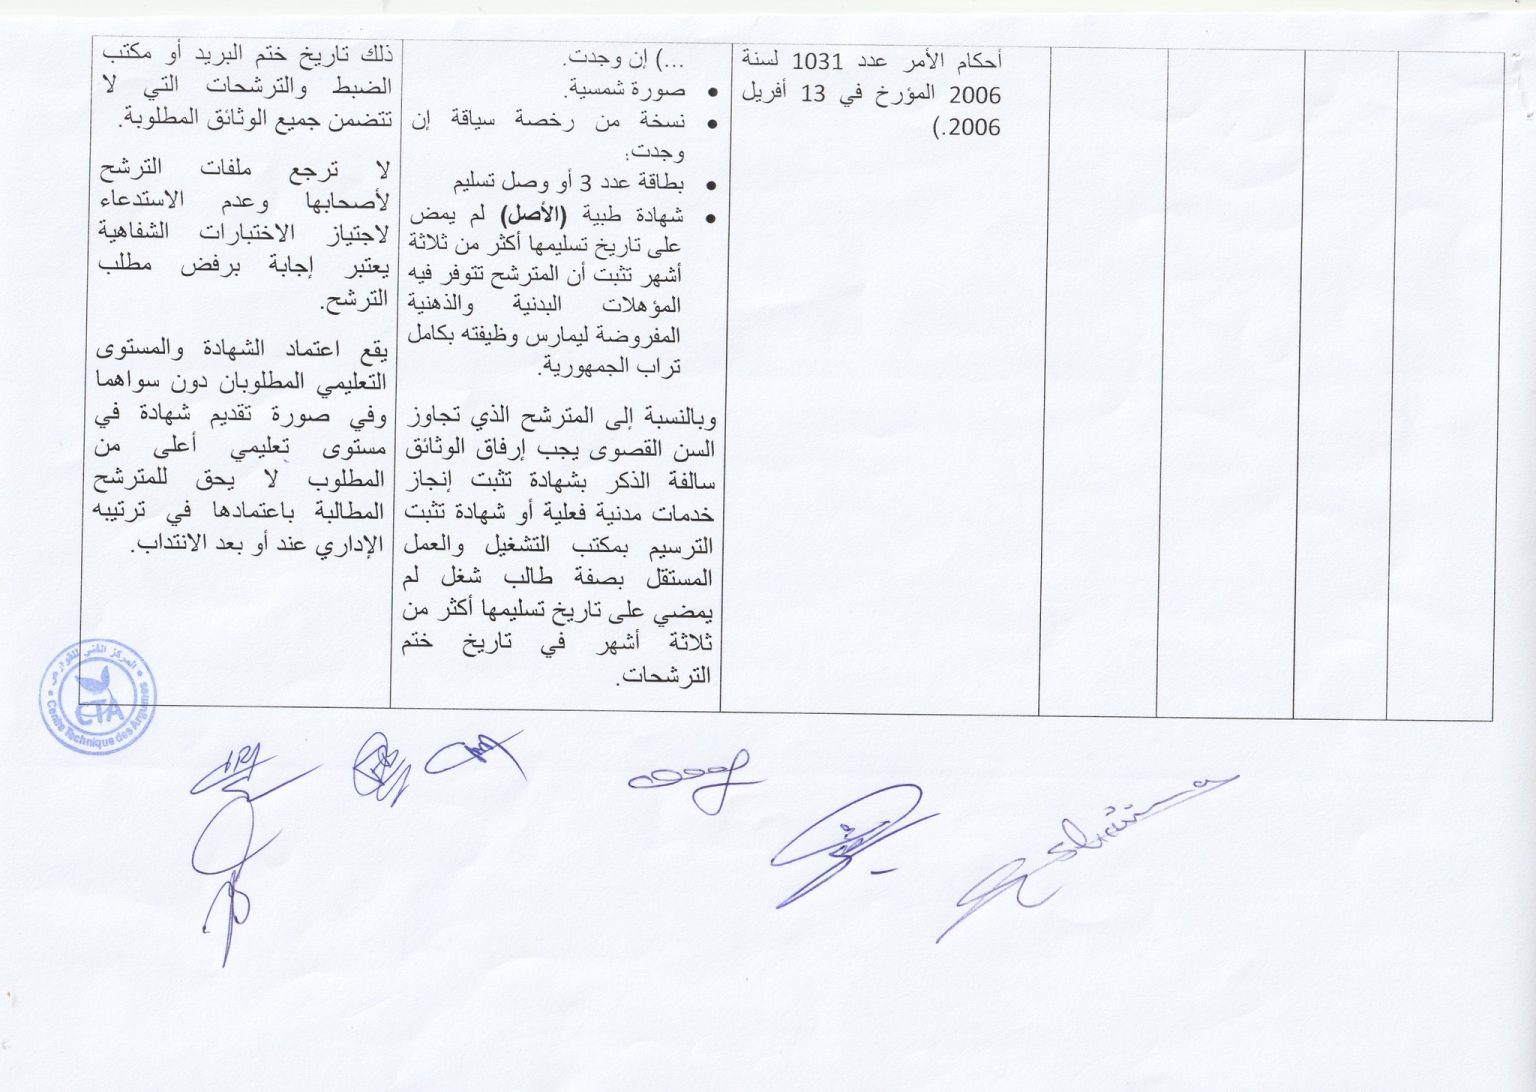 أحكام الأمر عدد 1031 لسنة
2006 المؤرخ في 13 أفريل
2006.)
...) إن وجدت.
• صورة شمسية.
• نسخة من رخصة سياقة إن
وجدت:
• بطاقة عدد 3 أو وصل تسليم
• شهادة طبية (الأصل) لم يمض
على تاريخ تسليمها أكثر من ثلاثة
أشهر تثبت أن المترشح تتوفر فيه
المؤهلات البدنية والذهنية
المفروضة ليمارس وظيفته بكامل
تراب الجمهورية.
وبالنسبة إلى المترشح الذي تجاوز
السن القصوى يجب إرفاق الوثائق
سالفة الذكر بشهادة تثبت إنجاز
خدمات مدنية فعلية أو شهادة تثبت
الترسيم بمكتب التشغيل والعمل
المستقل بصفة طالب شغل لم
يمضي على تاريخ تسليمها أكثر من
ثلاثة أشهر في تاريخ ختم
الترشحات.
ذلك تاريخ ختم البريد أو مكتب
الضبط والترشحات التي لا
تتضمن جميع الوثائق المطلوبة.
لا ترجع ملفات الترشح
لأصحابها وعدم الاستدعاء
لاجتياز الاختبارات الشفاهية
يعتبر إجابة برفض مطلب
الترشح.
يقع اعتماد الشهادة والمستوى
التعليمي المطلوبان دون سواهما
وفي صورة تقديم شهادة في
مستوى تعليمي أعلى من
المطلوب لا يحق للمترشح
المطالبة باعتمادها في ترتيبه
الإداري عند أو بعد الانتداب.
المركز الفني للقوارص
CTA
Centre Technique des Agrumes